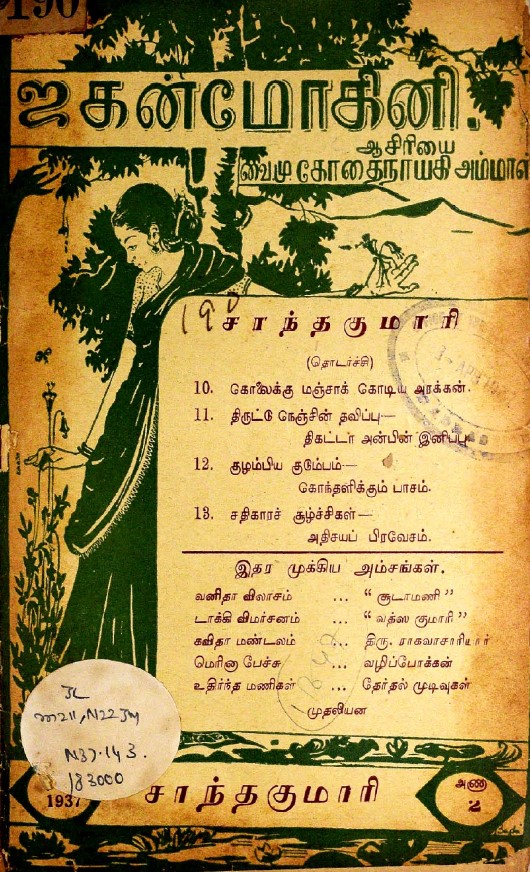 190
ஜகன்மோகினி.
ஆசிரியை
வை.மு. கோதைநாயகி அம்மாள்
190
சாந்தகுமாரி
(தொடர்ச்சி)
10. கொலைக்கு மஞ்சாக் கொடிய அரக்கன்.
11. திருட்டு நெஞ்சின் தவிப்பு—
திகட்டா அன்பின் இனிப்பு
12. குழம்பிய குடும்பம்—
கொந்தளிக்கும் பாசம்.
13. சதிகாரச் சூழ்ச்சிகள்—
அதிசயப் பிரவேசம்.
இதர முக்கிய அம்சங்கள்.
வனிதா விலாசம் ... "சூடாமணி"
டாக்கி விமர்சனம் ... "வத்ஸ குமாரி"
கவிதா மண்டலம் ... திரு. ராகவாசாரியார்
மெரினா பேச்சு ... வழிப்போக்கன்
உதிர்ந்த மணிகள் ... தேர்தல் முடிவுகள்
முதலியன
N37.143.
183000
1937
சாந்தகுமாரி
அணா
2